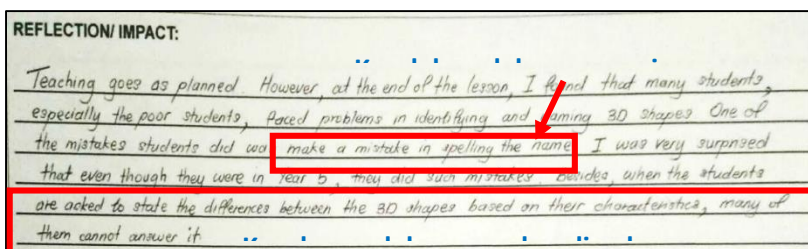 REFLECTION/ IMPACT:
Teaching goes as planned. However, at the end of the lesson, I found that many students,
especially the poor students, faced problems in identifying and naming 3D shapes One of
the mistakes students did was make a mistake in spelling the name I was very surprised
that even though they were in Year 5, they did such mistakes. Besides, when the students
are asked to state the differences between the 3D shapes based on their characteristics, many of
them cannot answer it